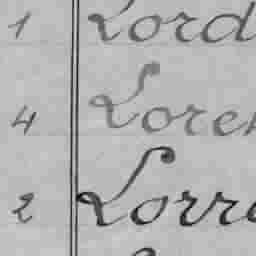 1 Lord
4 Loren
2 Lorre